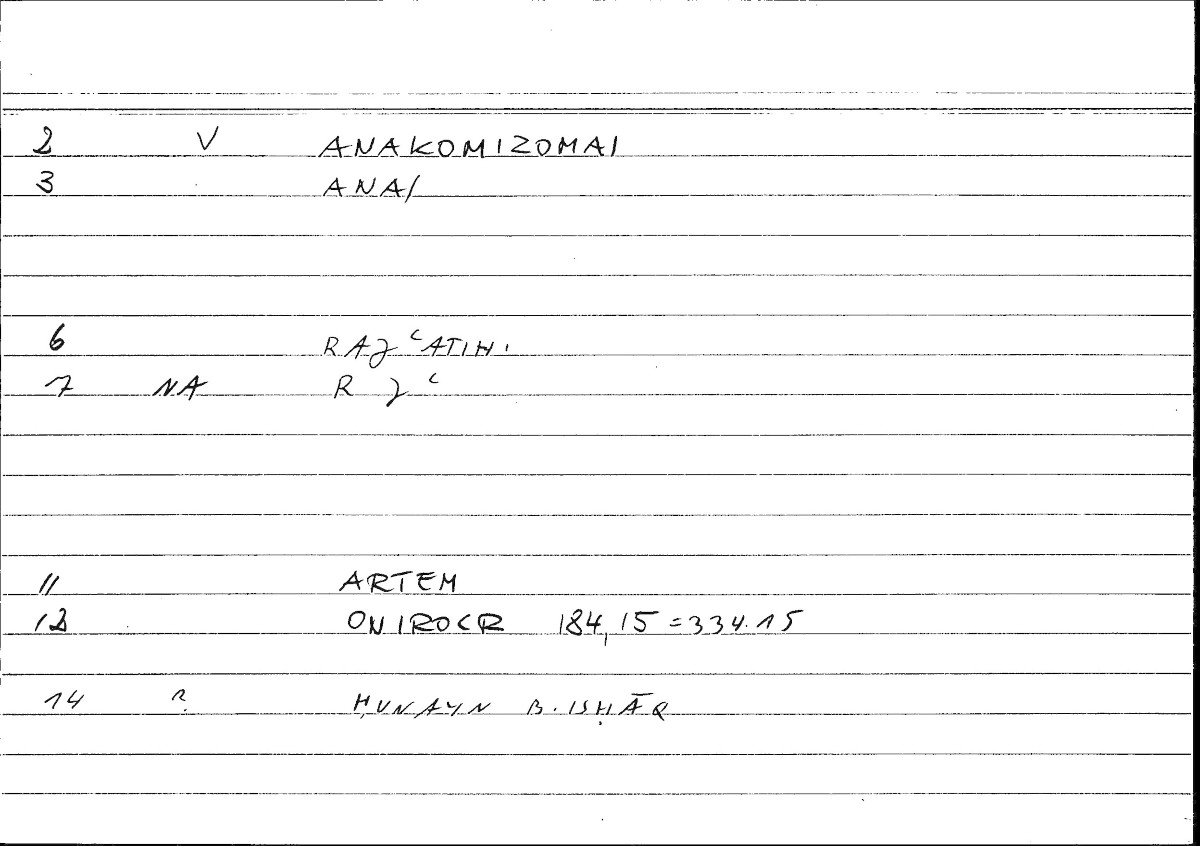 2 V ANAKOMIZOMAI
3 ANA/
6 RAJ ʿATIH.
7 NA R J ʿ
11 ARTEM
12 ONIROCR 184,15=334.15
14 ? ḤUNAYN B. ISḤĀQ